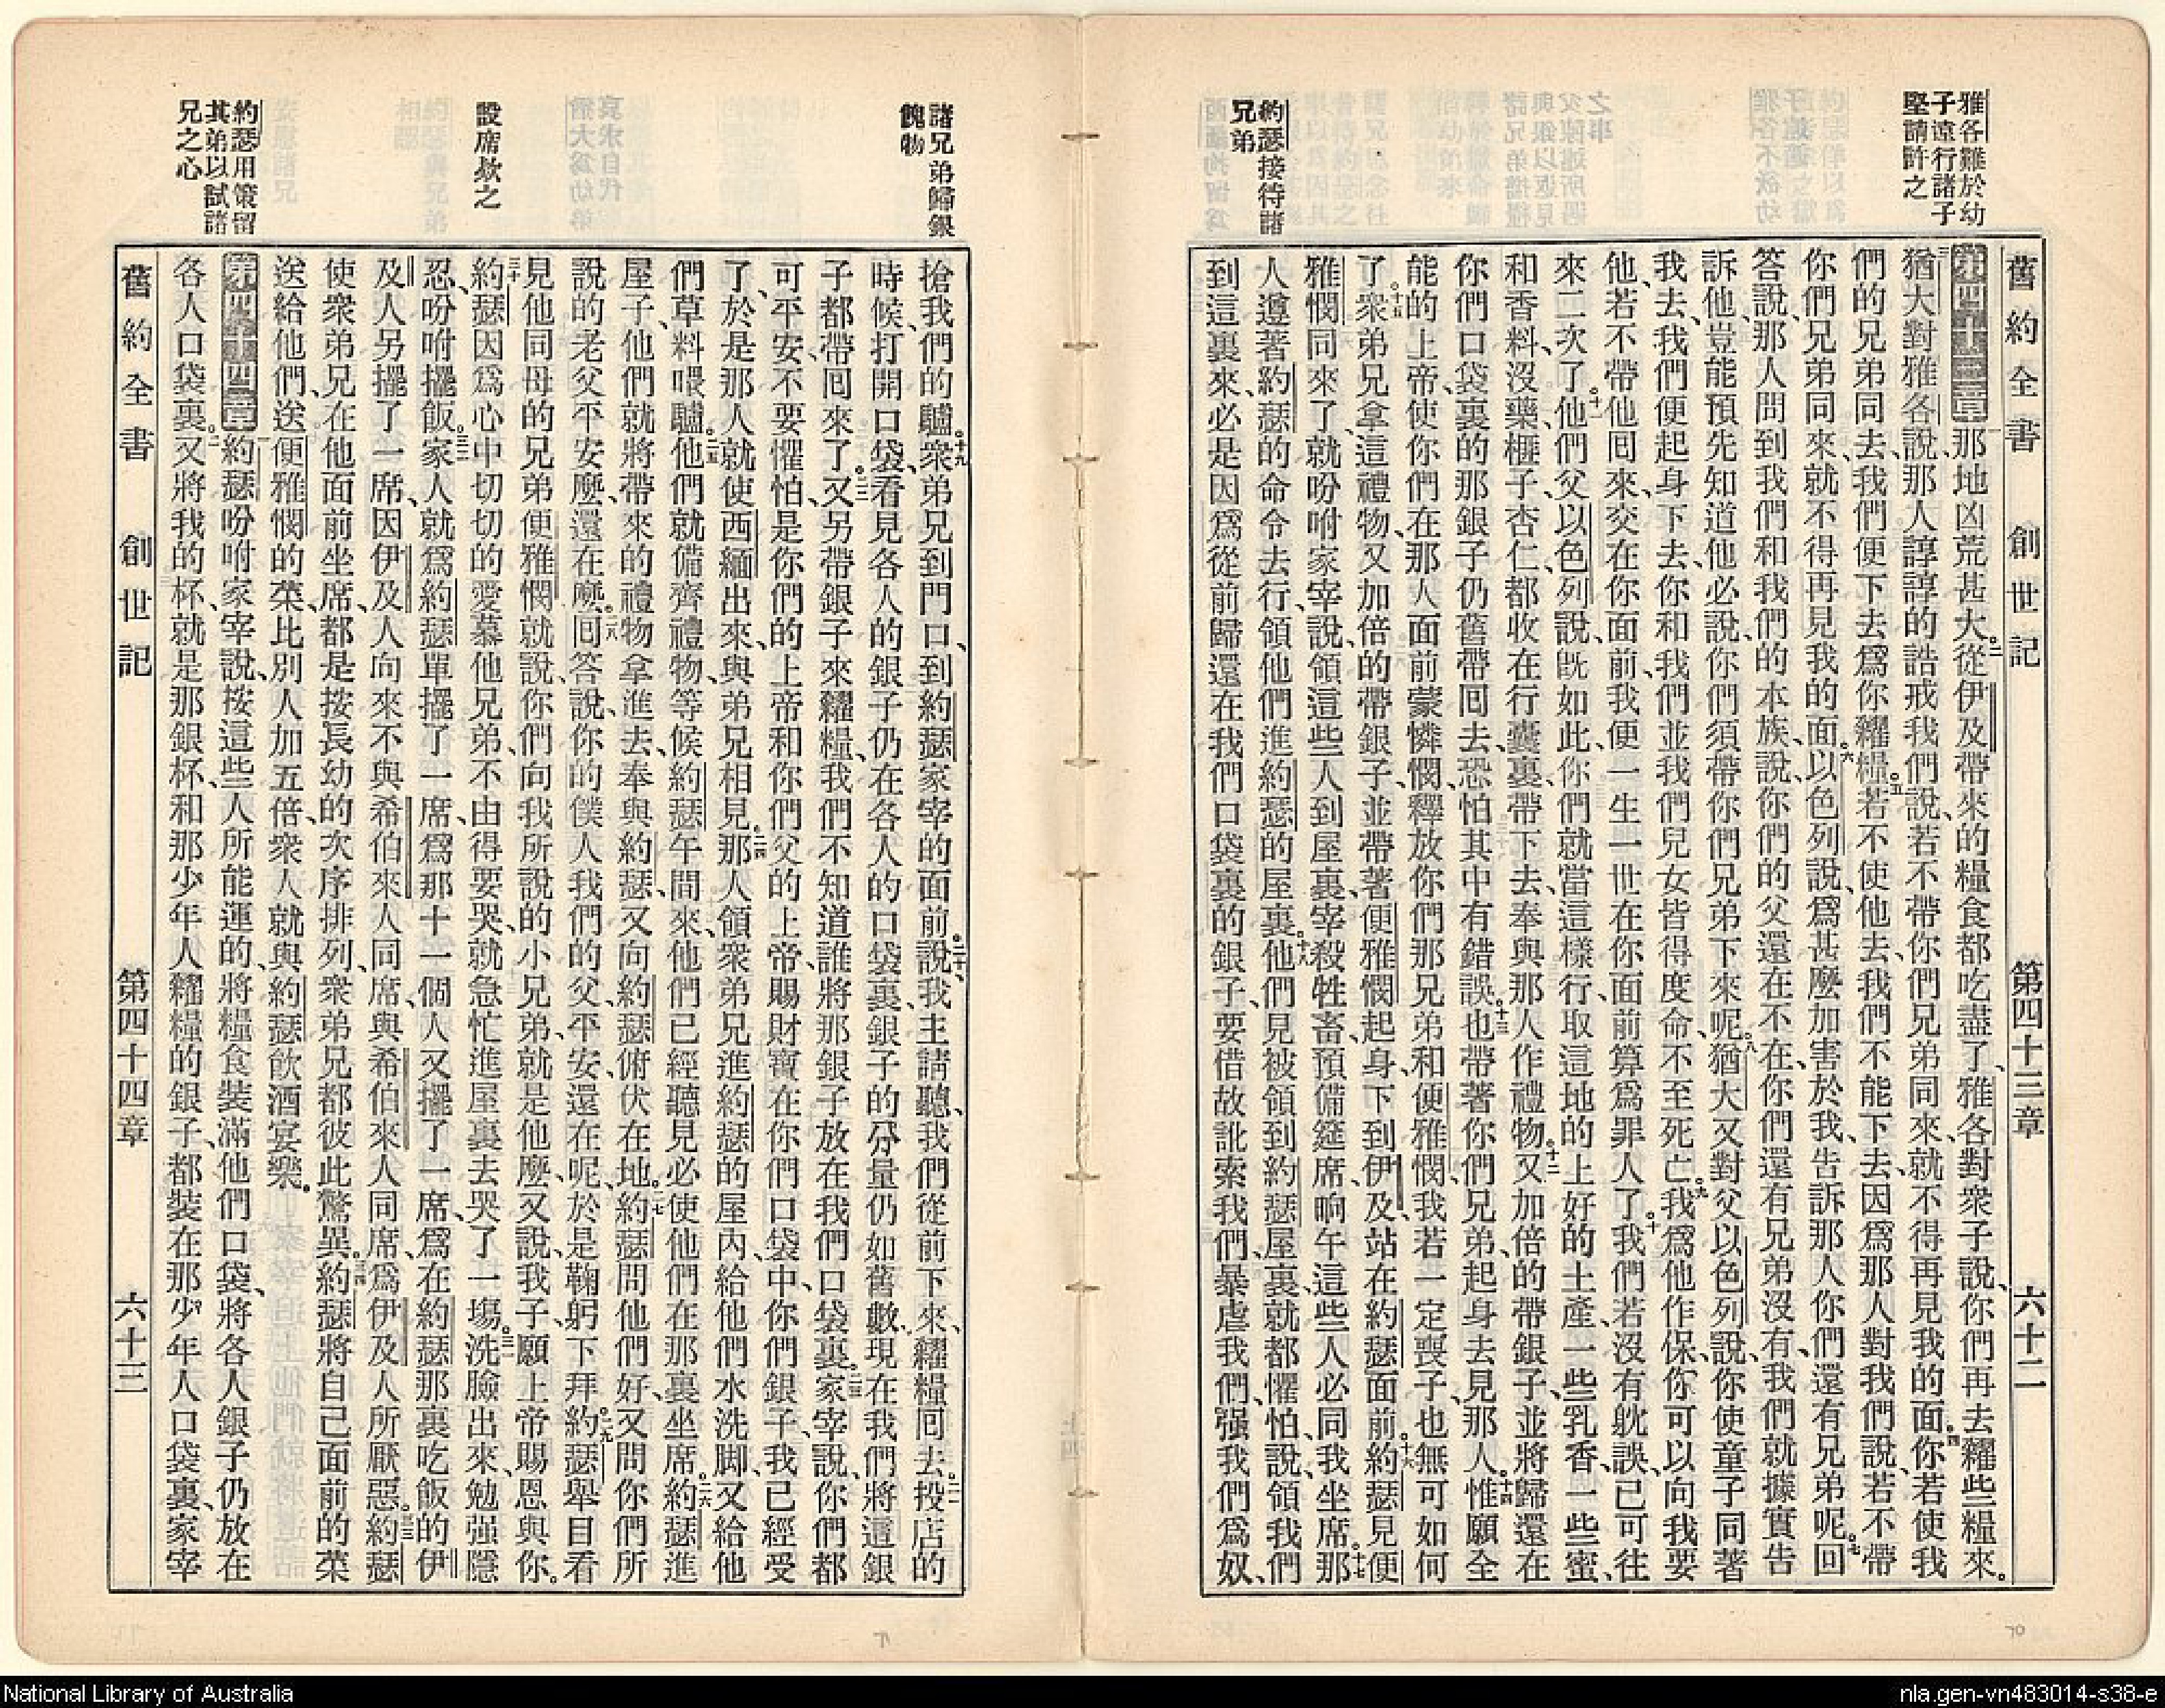 雅各難於幼
子遠行諸子
堅請許之
約瑟接待諸
兄弟
舊約全書 創世記 第四十三章 六十二
第四十三章那地凶荒甚大。二從伊及帶來的糧食都吃盡了、雅各對衆子說、你們再去糴些糧來。
三猶大對雅各說、那人諄諄的誥戒我們說、若不帶你們兄弟同來、就不得再見我的面。四你若使我
們的兄弟同去、我們便下去爲你糴糧。五若不使他去、我們不能下去、因爲那人對我們說、若不帶
你們兄弟同來、就不得再見我的面。六以色列說、爲甚麼加害於我、告訴那人你們還有兄弟呢。七回
答說、那人問到我們和我們的本族、說、你們的父還在不在、你們還有兄弟沒有、我們就據實告
訴他、豈能預先知道他必說、你們須帶你們兄弟下來呢。八猶大又對父以色列說、你使童子同著
我去、我們便起身下去、你和我們並我們兒女皆得度命、不至死亡。九我爲他作保、你可以向我要
他、若不帶他回來、交在你面前、我便一生一世在你面前算爲罪人了。十我們若沒有躭誤、已可往
來二次了。十一他們父以色列說、旣如此、你們就當這樣行、取這地的上好的土產、一些乳香、一些蜜、
和香料、沒藥、榧子、杏仁、都收在行囊裏、帶下去、奉與那人作禮物。十二又加倍的帶銀子、並將歸還在
你們口袋裏的那銀子仍舊帶回去、恐怕其中有錯誤。十三也帶著你們兄弟、起身去見那人。十四惟願全
能的上帝、使你們在那人面前蒙憐憫、釋放你們那兄弟和便雅憫、我若一定喪子、也無可如何
了。十五衆弟兄拿這禮物、又加倍的帶銀子、並帶著便雅憫、起身下到伊及、站在約瑟面前。十六約瑟見便
雅憫同來了、就吩咐家宰說、領這些人到屋裏、宰殺牲畜、預備筵席、晌午這些人必同我坐席。十七那
人遵著約瑟的命令去行、領他們進約瑟的屋裏。十八他們見被領到約瑟屋裏、就都懼怕、說、領我們
到這裏來、必是因爲從前歸還在我們口袋裏的銀子、要借故訛索我們、暴虐我們、强我們爲奴、
諸兄弟歸銀
餽物
設席欵之
約瑟用策留
其弟以試諸
兄之心
搶我們的驢。十九衆弟兄到門口、到約瑟家宰的面前。二十說、我主請聽、我們從前下來、糴糧回去。二一投店的
時候、打開口袋、看見各人的銀子仍在各人的口袋裏、銀子的分量仍如舊數、現在我們將這銀
子都帶回來了。二二又另帶銀子來糴糧、我們不知道誰將那銀子放在我們口袋裏。二三家宰說、你們都
可平安、不要懼怕、是你們的上帝和你們父的上帝、賜財寶在你們口袋中、你們銀子、我已經受
了、於是那人就使西緬出來、與弟兄相見。二四那人領衆弟兄進約瑟的屋內、給他們水洗脚、又給他
們草料喂驢。二五他們就備齊禮物、等候約瑟午間來、他們已經聽見必使他們在那裏坐席。二六約瑟進
屋子、他們就將帶來的禮物拿進去、奉與約瑟、又向約瑟俯伏在地。二七約瑟問他們好、又問你們所
說的老父平安麼、還在麼。二八回答說、你的僕人我們的父、平安、還在呢、於是鞠躬下拜。二九約瑟舉目看
見他同母的兄弟便雅憫、就說、你們向我所說的小兄弟、就是他麼、又說、我子、願上帝賜恩與你。
三十約瑟因爲心中切切的愛慕他兄弟、不由得要哭、就急忙進屋裏去哭了一塲。三一洗臉出來、勉强隱
忍、吩咐擺飯。三二家人就爲約瑟單擺了一席、爲那十一個人又擺了一席、爲在約瑟那裏吃飯的伊
及人另擺了一席、因伊及人向來不與希伯來人同席、與希伯來人同席、爲伊及人所厭惡。三三約瑟
使衆弟兄在他面前坐席、都是按長幼的次序排列、衆弟兄都彼此驚異。三四約瑟將自己面前的菜
送給他們、送便雅憫的菜、比別人加五倍、衆人就與約瑟飮酒宴樂。
第四十四章一約瑟吩咐家宰說、按這些人所能運的、將糧食裝滿他們口袋、將各人銀子仍放在
各人口袋裏。二又將我的杯、就是那銀杯、和那少年人糴糧的銀子、都裝在那少年人口袋裏、家宰
舊約全書 創世記 第四十四章 六十三